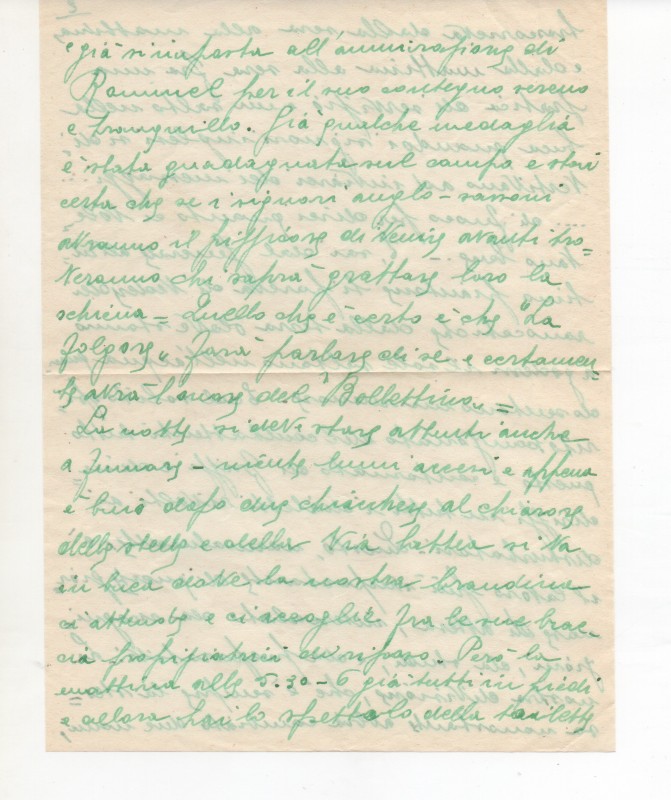 e già s'imposta all'ammirazione di
Rommel per il suo contegno sereno
e tranquillo. Già qualche medaglia
è stata guadagnata sul campo e stai
certa che se i signori anglo-sassoni
avranno il pifficore di venire avanti tro=
veranno chi saprà grattare loro la
schiena = Quello che è certo è che "La
Folgore" farà parlare di sé e certamen=
te avrà l'onore del "Bollettino" =
La notte si deve stare attenti anche
a fumare - niente lumi accesi e appena
è buio dopo due chiacchere al chiarore
delle stelle e della Via Lattea si va
in buca dove la nostra brandina
ci attende e ci accoglie fra le sue brac=
cia propiziatrici di riposo. Però la
mattina alle 5.30-6 già tutti in piedi
e allora hai lo spettacolo della toilette